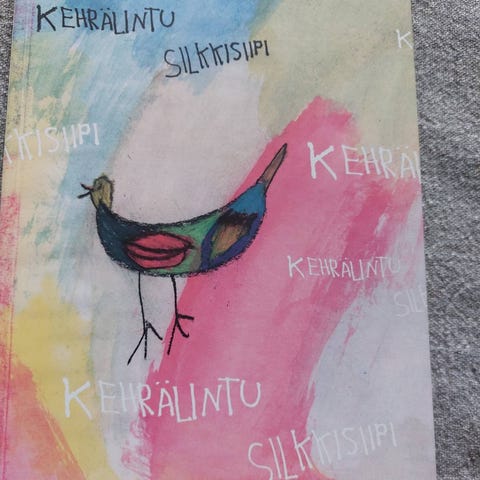 KEHRÄLINTU
SILKKISIIPI
K
KKISIIPI
KEHRÄI
KEHRÄLINTU
SIL
KEHRÄLINTU
SILKKISIIPI